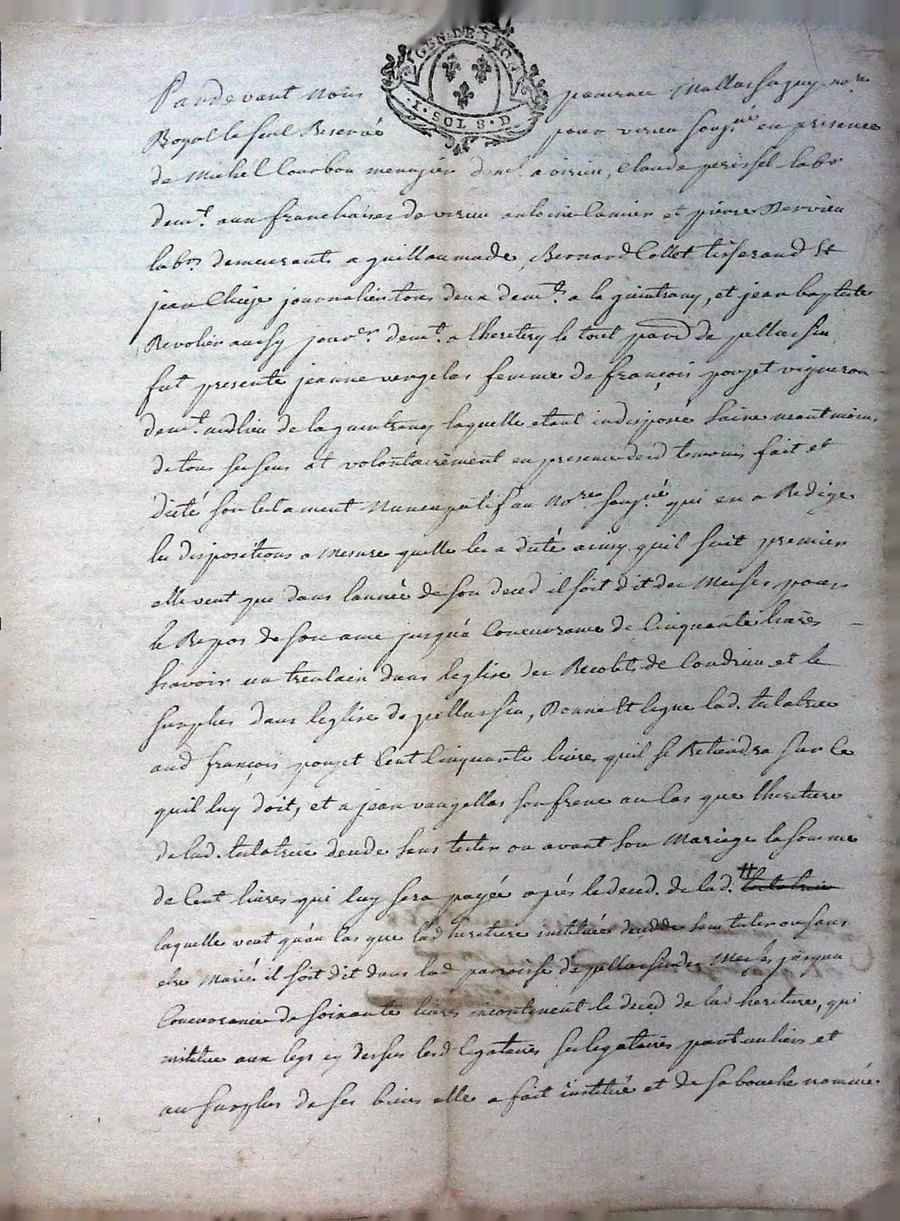 GEN. DE LYON
I. SOL 8. D.
Pardevant Nous
Royal le seul Reservé pour virieu sougné en presence
de Michel Courbon menagier demt a virieu, Claude perissel labr
demt aux franchises de virieu antoine Camier et pierre Dervieu
labrs demeurants a guillaumade, Bernard Collet tisserand Et
jean Chieze journalier tous deux demt a la guintrany, et jean baptiste
Revolier aussy jourer demt a lheritery le tout parr de pellussin
fut presente jeanne vergelas femme de françois poujet vigneron
demt audlieu de la guintrany laquelle etant indisposé saine neantmoins
de tous ses sens et volontairement en presence desd temoins fait et
dicté son testament Nuncupatif au Nore sougné qui en a Redigé
les dispositions a Mesure quelle les a dicté ainsy quil suit premier
elle veut que dans lannée de son deced il soit dit des Messes pour
le Repos de son ame jusqua Concurance de Cinquante livres
scavoir un trentain dans leglise des Recolets de Condrieu et le
surplus dans leglise de pellussin, Donne Et legue lad. testatrice
aud françois poujet Cent Cinquante livres quil se Retiendra sur ce
quil luy doit, et a jean vangellas son frere au Cas que lheritiere
de lad. testatrice decede sans tester ou avant son Mariage la somme
de Cent livres qui luy sera payée après le deced. de lad. # testatrice
laquelle veut quau Cas que lad heritiere instituée decedde sans tester ou sans
etre Marié il soit dit dans lad parroisse de pellussin des Messes jusqua
Concurance de soixante livres incontinent le deced de lad heritiere, qui
institue aux legs cy dessus lesd legataires ses legataires particuliers et
au surplus de ses biens elle a fait institué et de sa bouche nommé